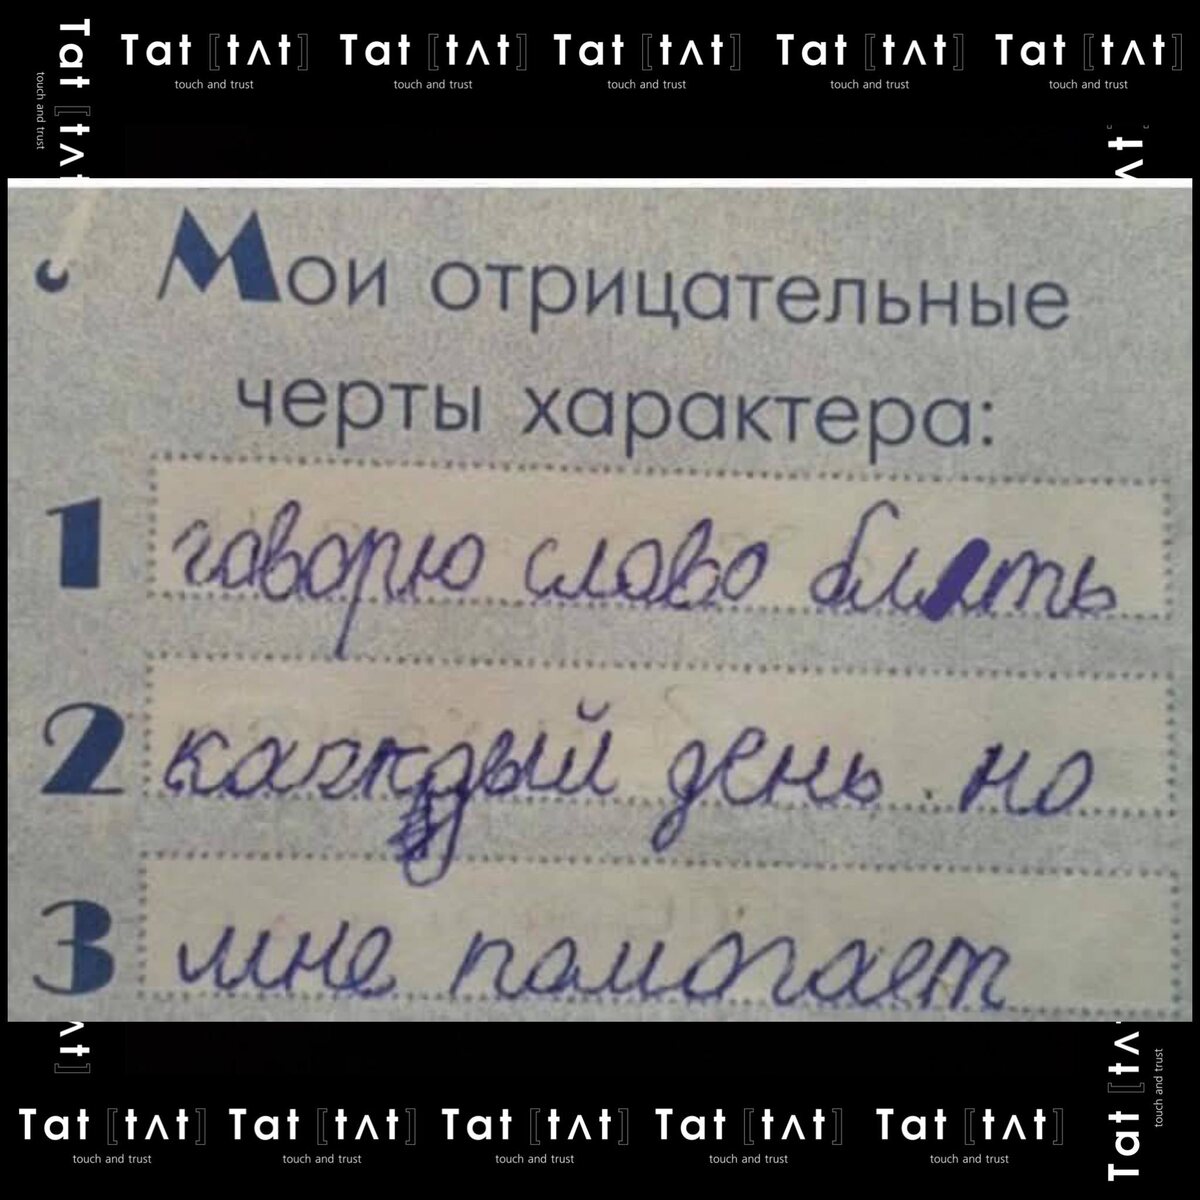 Tat [tʌt] Tat [tʌt] Tat [tʌt] Tat [tʌt] Tat [tʌt]
touch and trust touch and trust touch and trust touch and trust touch and trust
Tat [tʌt
touch and trust
ʌt]
Мои отрицательные
черты характера:
1 говорю слово блять
2 каждый день. но
3 мне помогает
ʌt]
Tat [tʌ
touch and trust
Tat [tʌt] Tat [tʌt] Tat [tʌt] Tat [tʌt] Tat [tʌt]
touch and trust touch and trust touch and trust touch and trust touch and trust